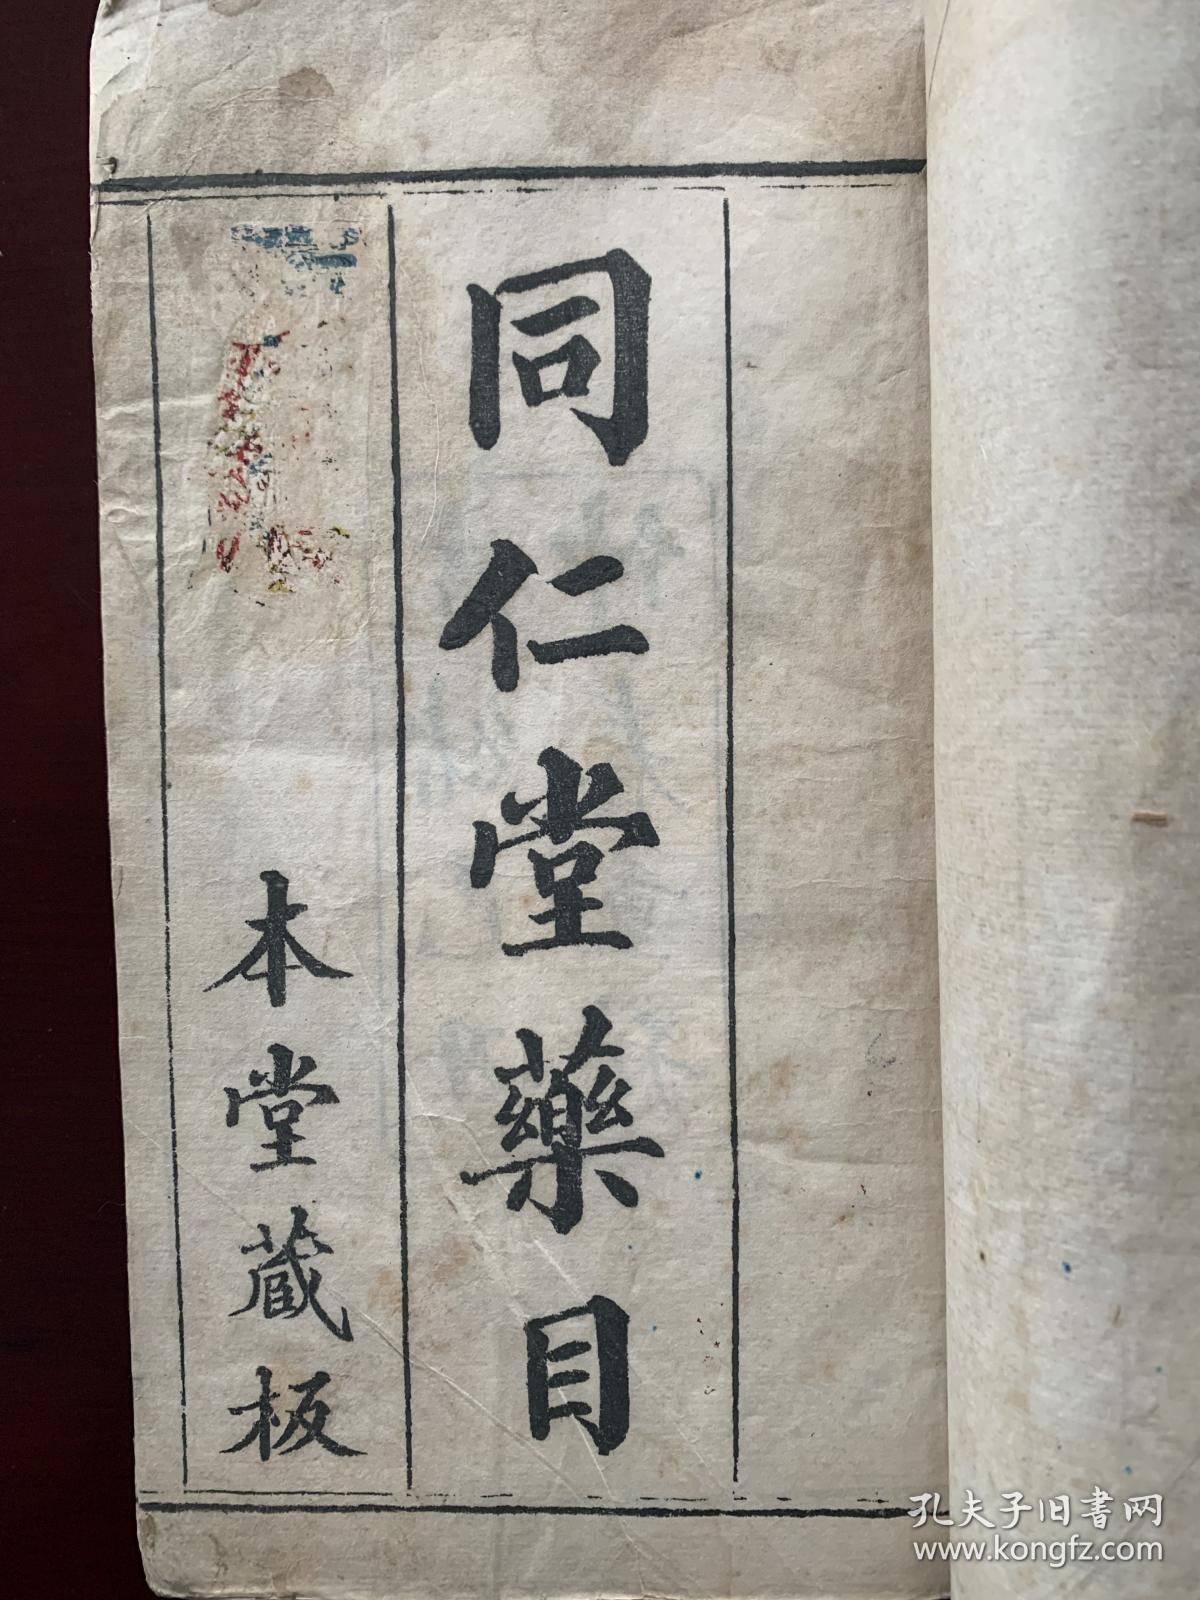 同仁堂藥目
本堂蔵板
孔夫子旧书网
www.kongfz.com